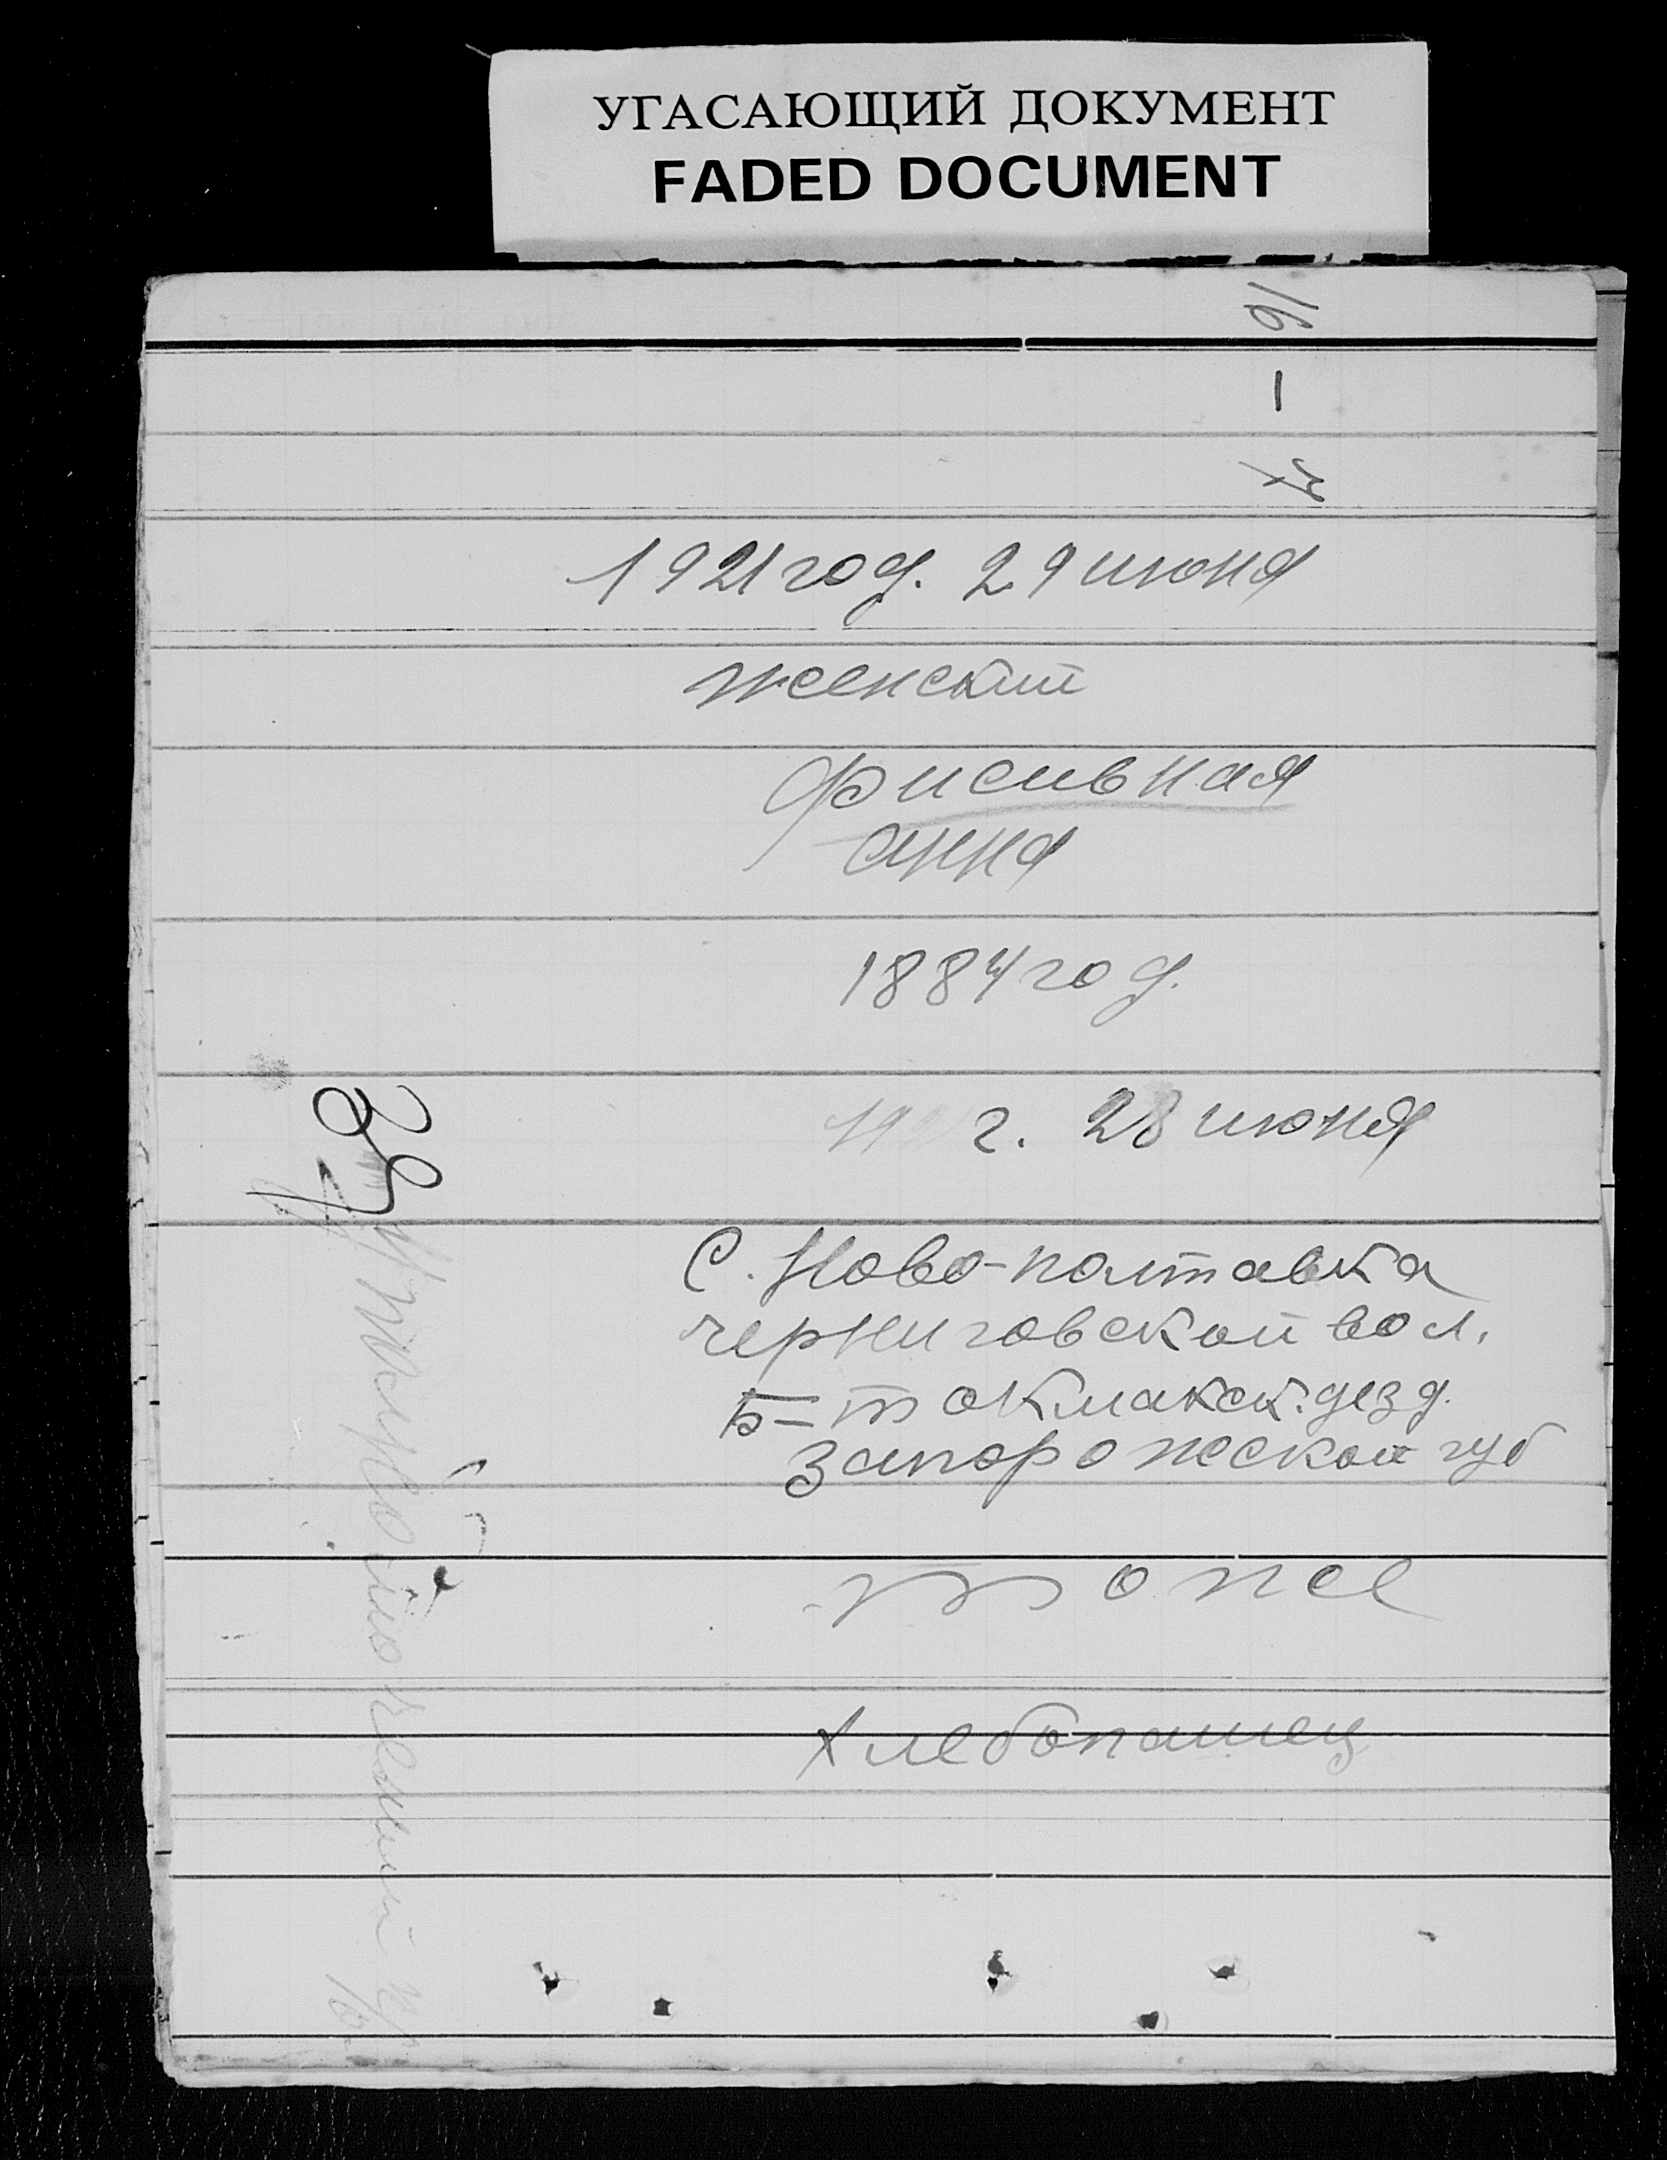 УГАСАЮЩИЙ ДОКУМЕНТ
FADED DOCUMENT
16
1921 год. 29 июня
женский
Фисивная
анна
1884 год.
19 г. 28 июня
С. Ново-полтавка
черниговской вол.
Б-токмакск. уезд.
запорожской губ
тоже
Хлебопашец
23